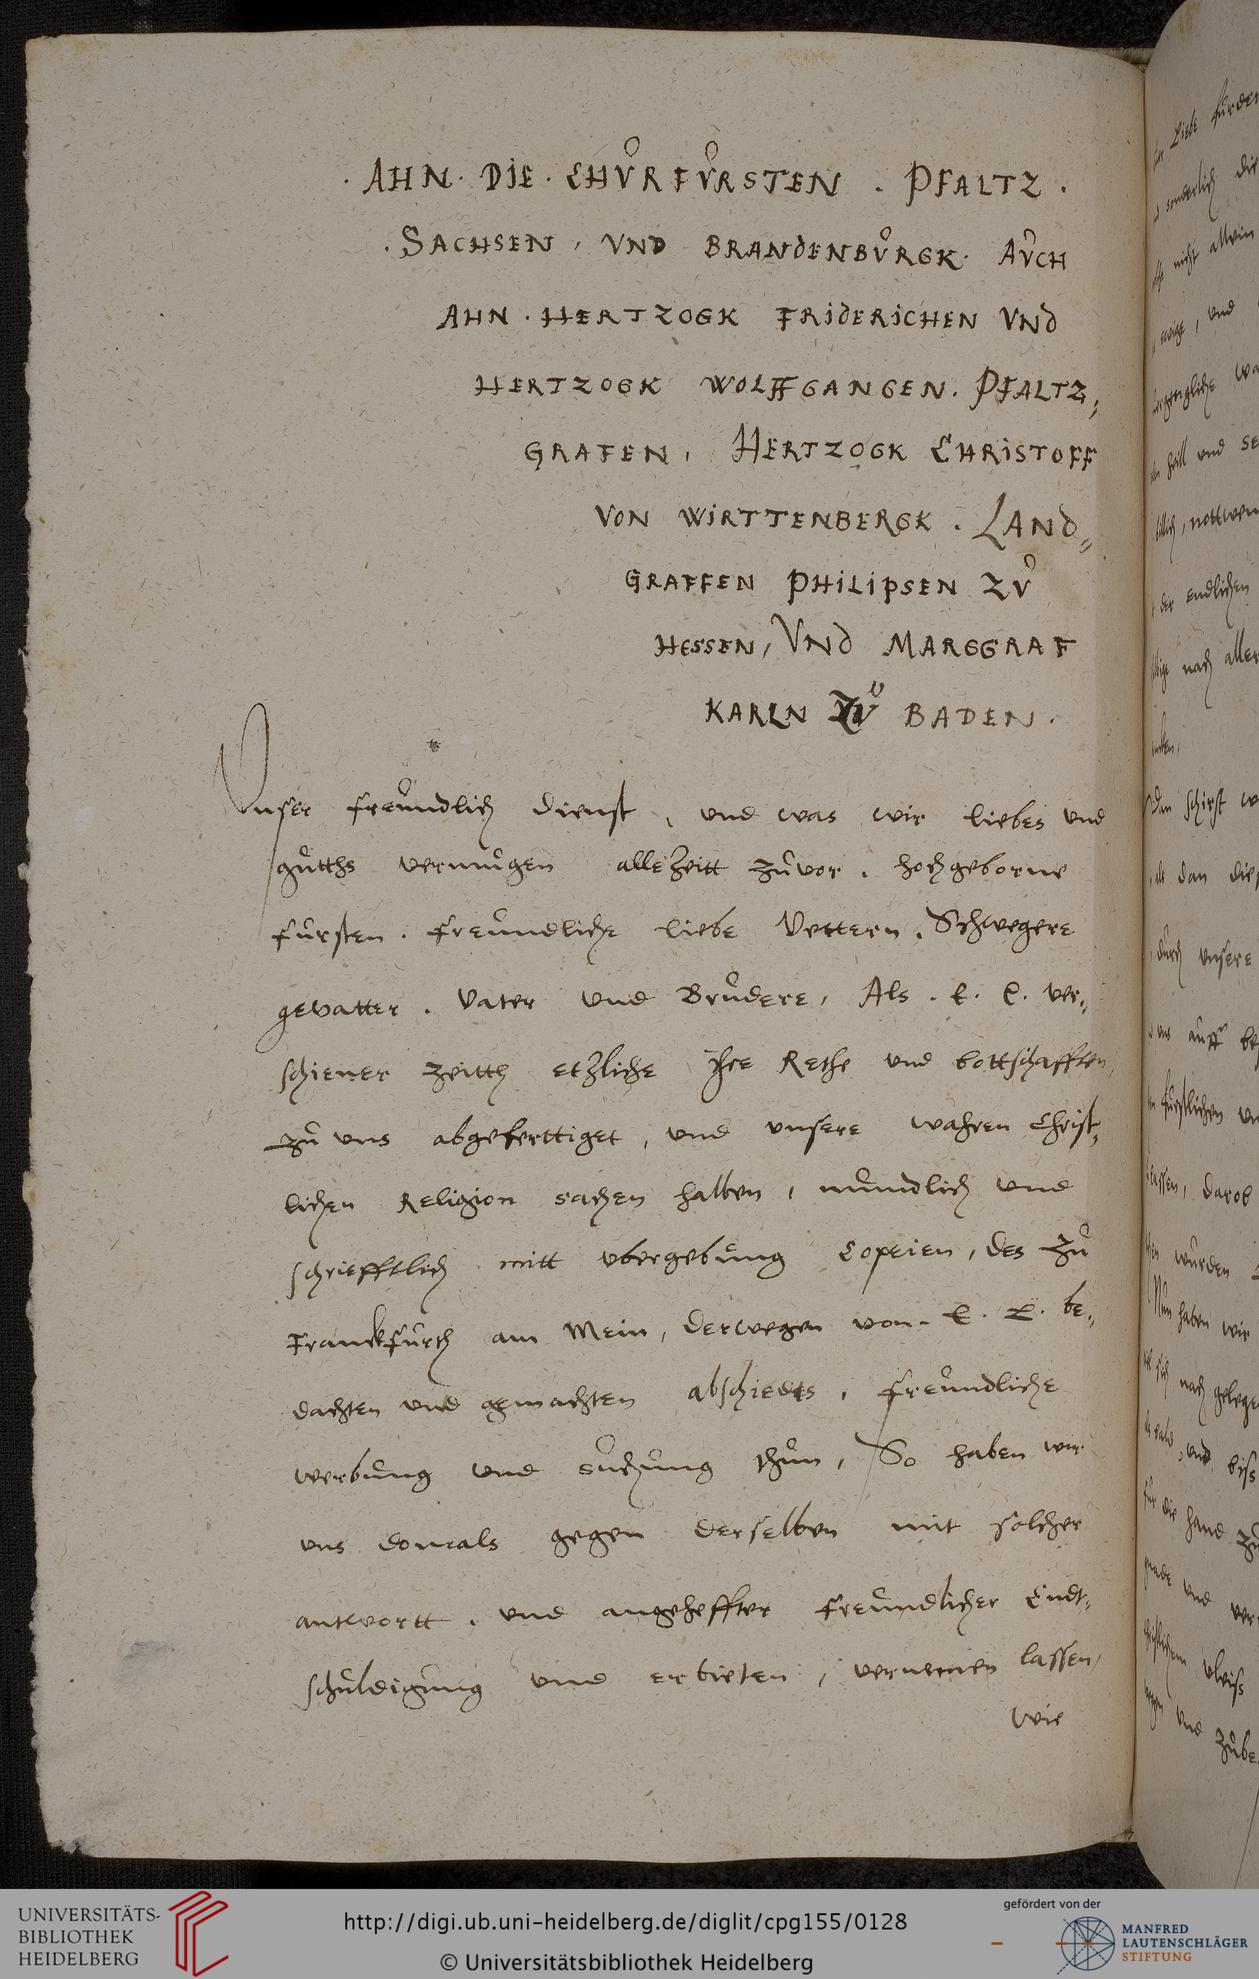 . AHN . DIE . CHŮRFŮRSTEN . PFALTZ .
. SACHSEN , VND BRANDENBŮRGK . AŮCH
AHN . HERTZOGK FRIDERICHEN VND
HERTZOGK WOLFFGANGEN . PFALTZ„
GRAFEN , HERTZOGK CHRISTOFF
VON WIRTTENBERGK . LAND„
GRAFFEN PHILIPSEN ZŮ
HESSEN , VND MARGGRAF
KARLN ZŮ BADEN .
Vnser freůndlich dienst , vnd was wir liebes vnd
gůtths vermůgen allezeitt zůvor . hochgeborne
fůrsten . freůndliche liebe Vettern . Schwegere
gevatter . Vater vnd Brůdere , Als . E . L . ver„
schiener zeitth etzliche Ihre Rethe vnd bottschafften
zů vns abgeferttiget , vnd vnsere wahren Christ„
lichen Religion sachen halben , můndlich vnd
schriefftlich mitt vbergebůng Copeien , des zů
Franckfůrth am Mein , derwegen von . E . L . be„
dachten vnd gemachten abschiedts , freůndliche
werbůng vnd sůchůng thůn , So haben wir
vns domals gegen derselben mit solcher
antwortt . vnd angeheffter freůndlicher Endt„
schůldigůng vnd erbieten , vernemen lassen ,
wie
UNIVERSITÄTS-
BIBLIOTHEK
HEIDELBERG
http://digi.ub.uni-heidelberg.de/diglit/cpg155/0128
© Universitätsbibliothek Heidelberg
gefördert von der
MANFRED
LAUTENSCHLÄGER
STIFTUNG